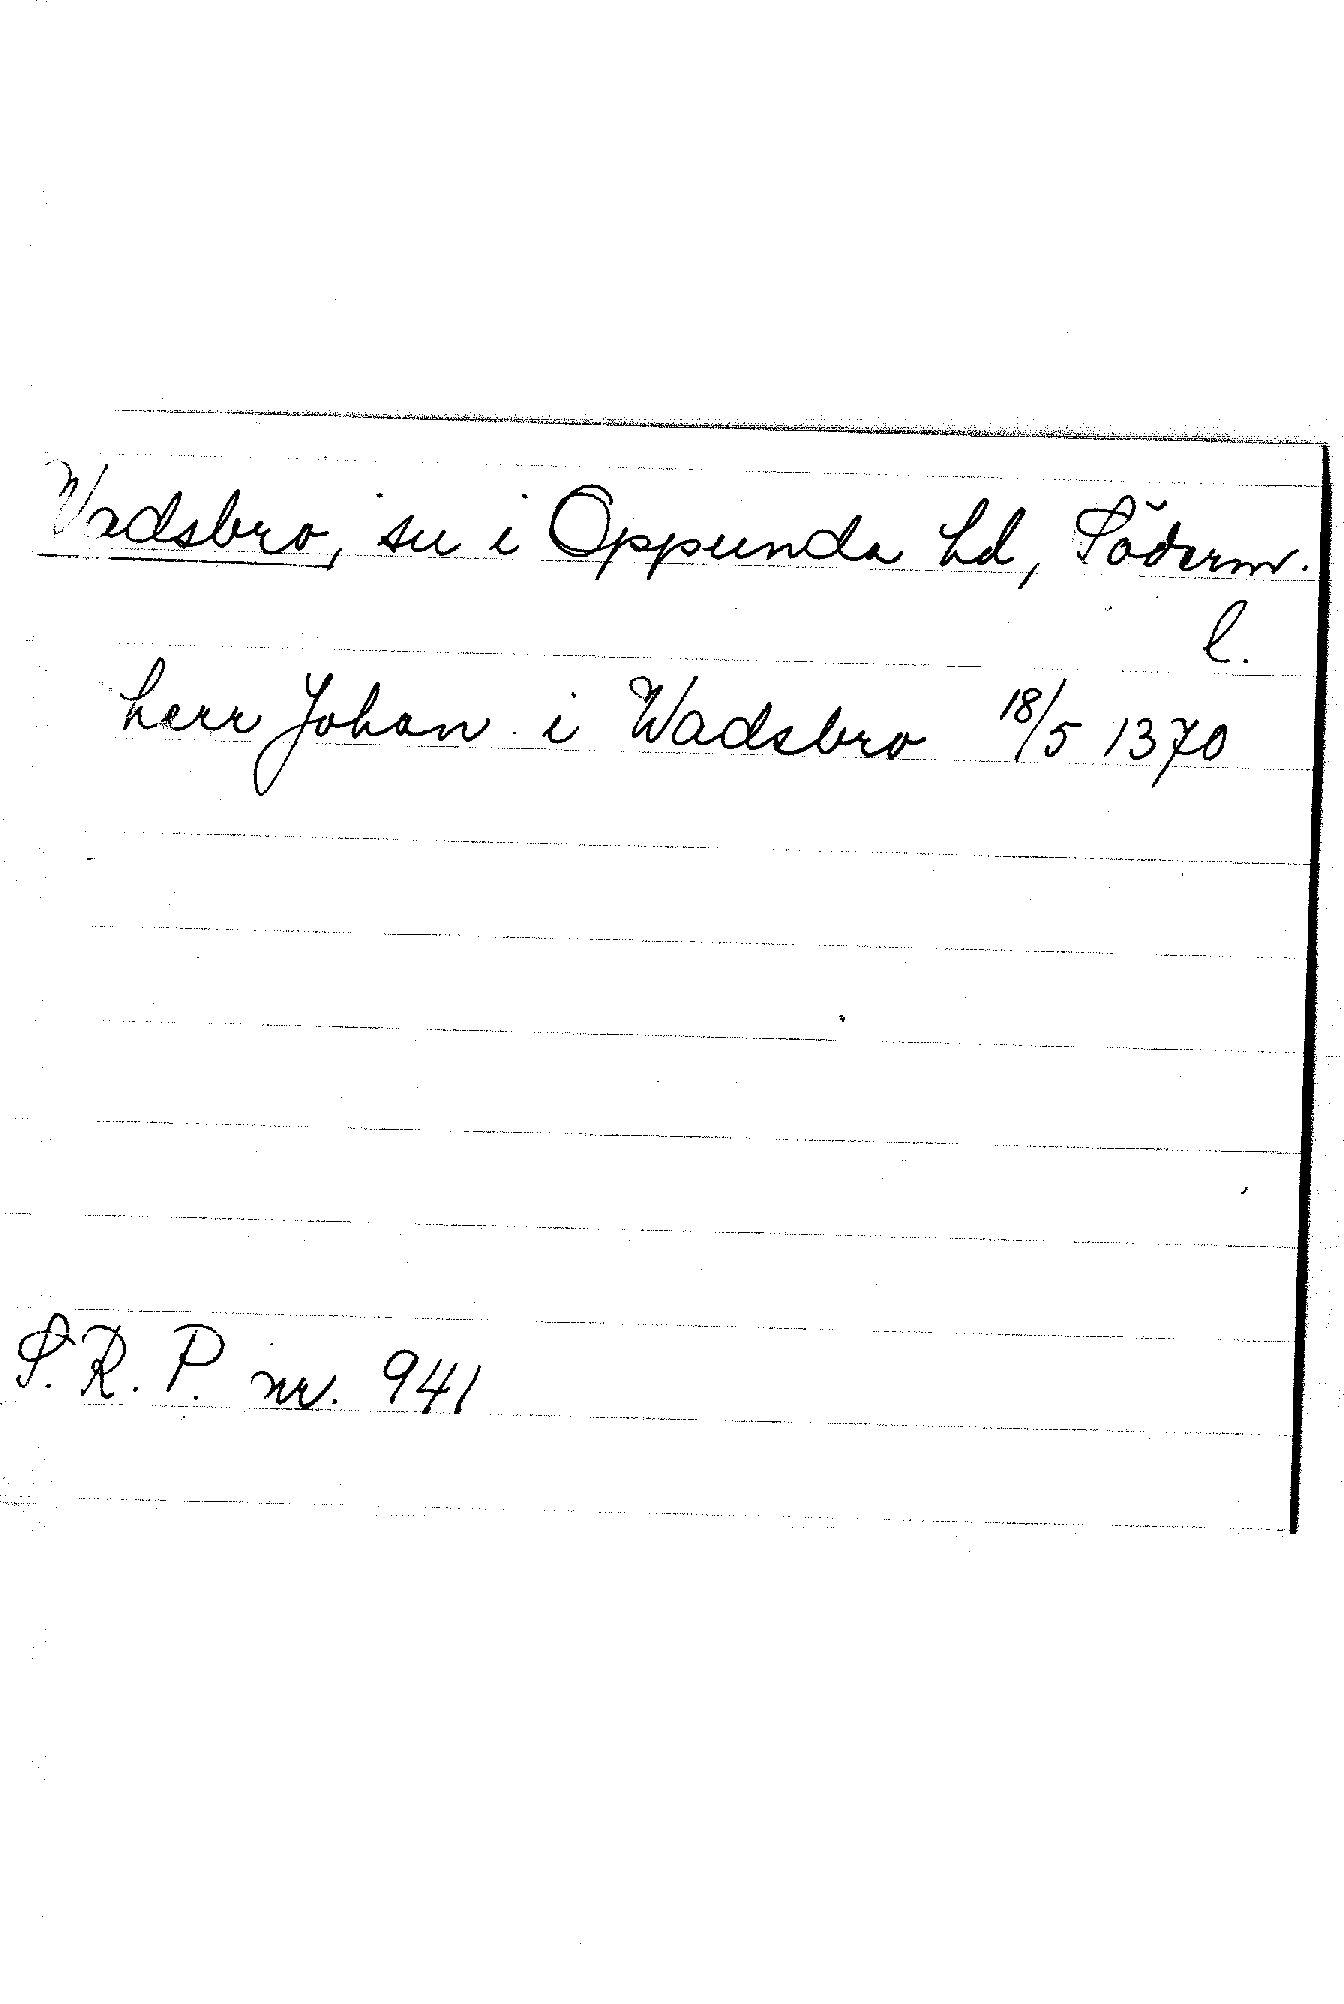 Vadsbro, su i Oppunda hd, Söderm.
l.
herr Johan i Wadsbro 18/5 1370
S.R.P. nr. 941